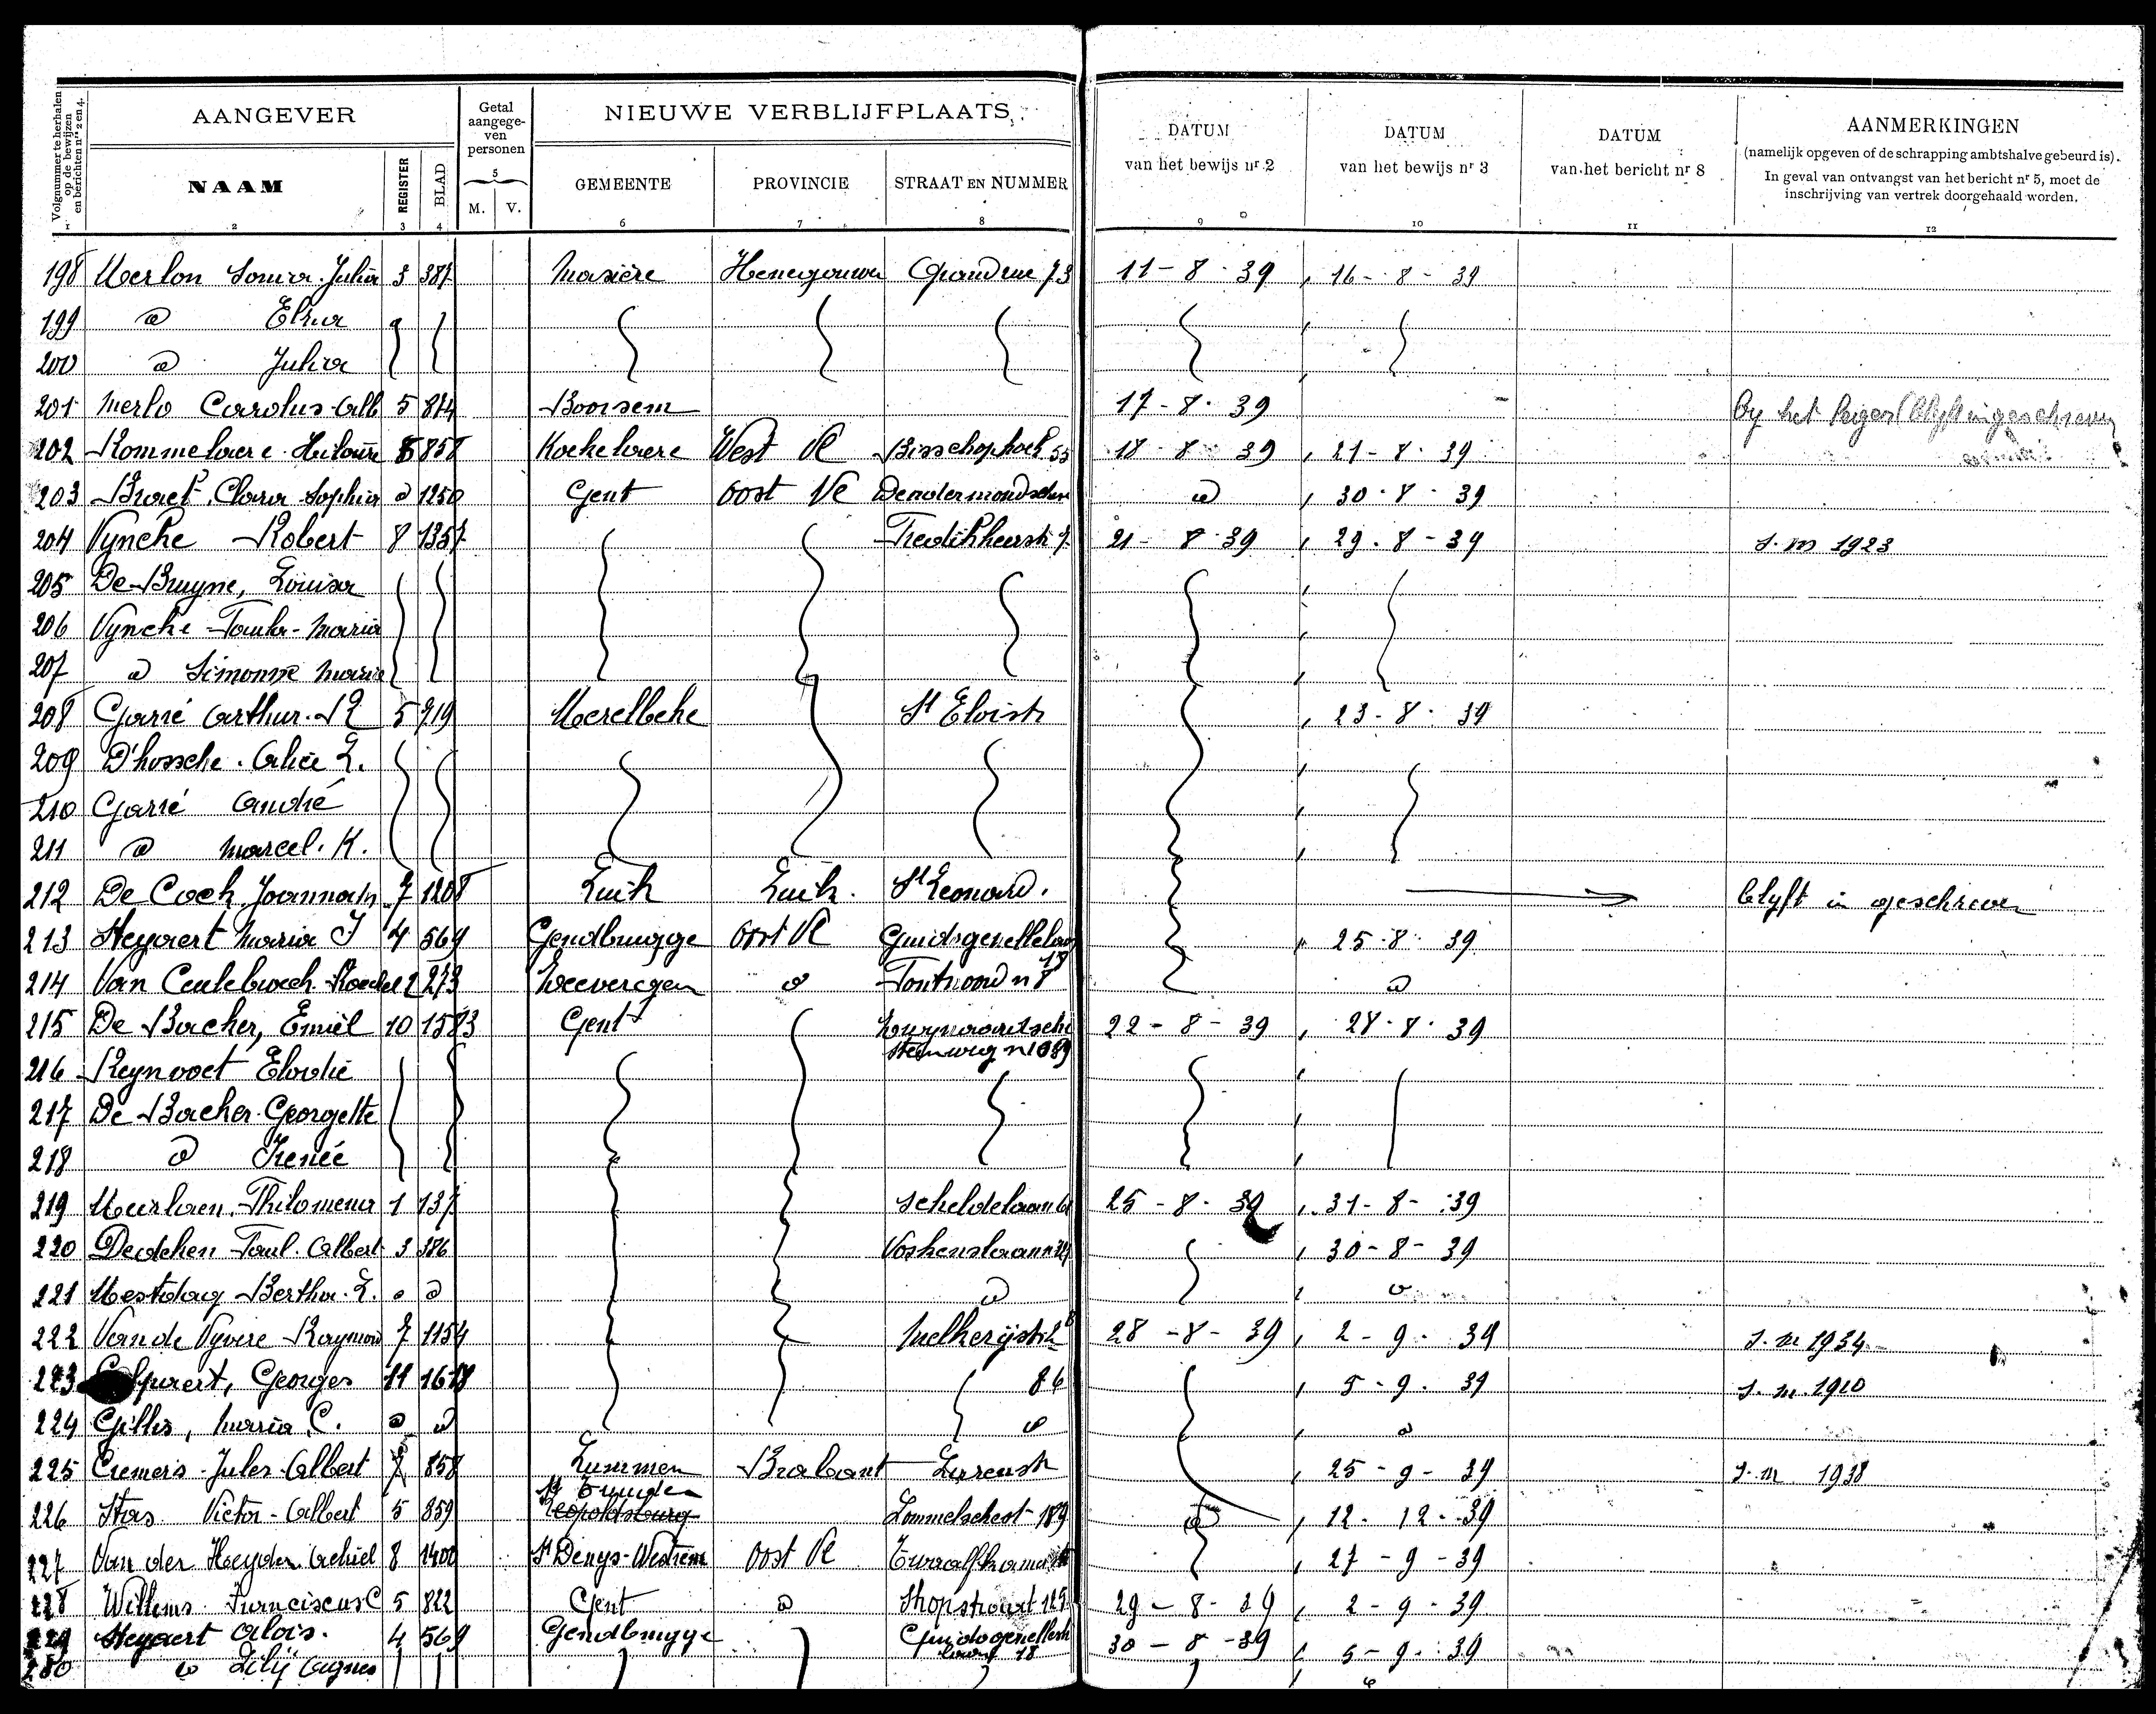 Volgnummer te herhalen op de bewijzen en berichten nrs 2 en 4.
AANGEVER
Getal aangege-ven personen
NIEUWE VERBLIJFPLAATS
DATUM van het bewijs nr 2
DATUM van het bewijs nr 3
DATUM van het bericht nr 8
AANMERKINGEN
(namelijk opgeven of de schrapping ambtshalve gebeurd is).
In geval van ontvangst van het bericht nr 5, moet de
inschrijving van vertrek doorgehaald worden.
NAAM REGISTER BLAD 5 M. V. GEMEENTE PROVINCIE STRAAT EN NUMMER
1 2 3 4 6 7 8 9 10 11 12
198 Merlon Julia 3 387 Masière Henegouwen Grand rue 73 11-8-39 16-8-39
199 Elisa
200 Julia
201 Merlo Carolus Alb 5 Boorsem 17-8-39 By het leger (blyft ingeschreven
202 Rommelaere Hilaire 5 858 Koekelaere West Vl Bisschophoek 55 18-8-39 21-8-39
203 Clara Sophia d 1250 Gent Oost Vl d 30-8-39
204 Vyncke Robert 8 1357 21-8-39 29-8-39 s. m 1923
205 De Bruyne, Louisa
206 Vyncke Paula Maria
207 d Simonne Maria
208 Garré Arthur 5 719 Merelbeke St Eloistr 23-8-39
209 D'hossche Alice L.
210 Garré André
211 d Marcel. K.
212 De Cock Joanna 7 1208 Luik Luik. St Leonard. blyft in geschreven
213 Heyaert Maria J 4 569 Gendbrugge Oost Vl Guido gezellelaan 18 25-8-39
214 Van 273 Zeeveregem d n 8 d
215 De Backer, Emiel 10 1583 Gent Zwynaardsche steenweg 22-8-39 28-8-39
216 Reynvoet Elodie
217 De Backer Georgette
218 d Irenée
219 Philomena 1 137 Scheldelaan 25-8-39 31-8-39
220 Paul Albert 3 386 Voskenslaan 30-8-39
221 Mestdag Bertha L. d d d d
222 Van de Vyvere Raymond 7 1154 28-8-39 2-9-39 s. m 1934
223 Georges 11 1618 86 5-9-39 s. m. 1910
224 Gillis, Maria C. d d d d
225 Cremers Jules Albert 7 858 Lummen Brabant 25-9-39 s. m 1938
St Truiden
226 Stas Victor Albert 5 859 Leopoldsburg 189 d 12-12-39
227 Van der Heyden Achiel 8 1400 St Denys-Westrem Oost Vl 27-9-39
228 Willems Franciscus C 5 822 Gent d 29-8-39 2-9-39
229 Heyaert Alois. 4 569 Gendbrugge Guido gezelle laan 18 30-8-39 5-9-39
230 d Agnes